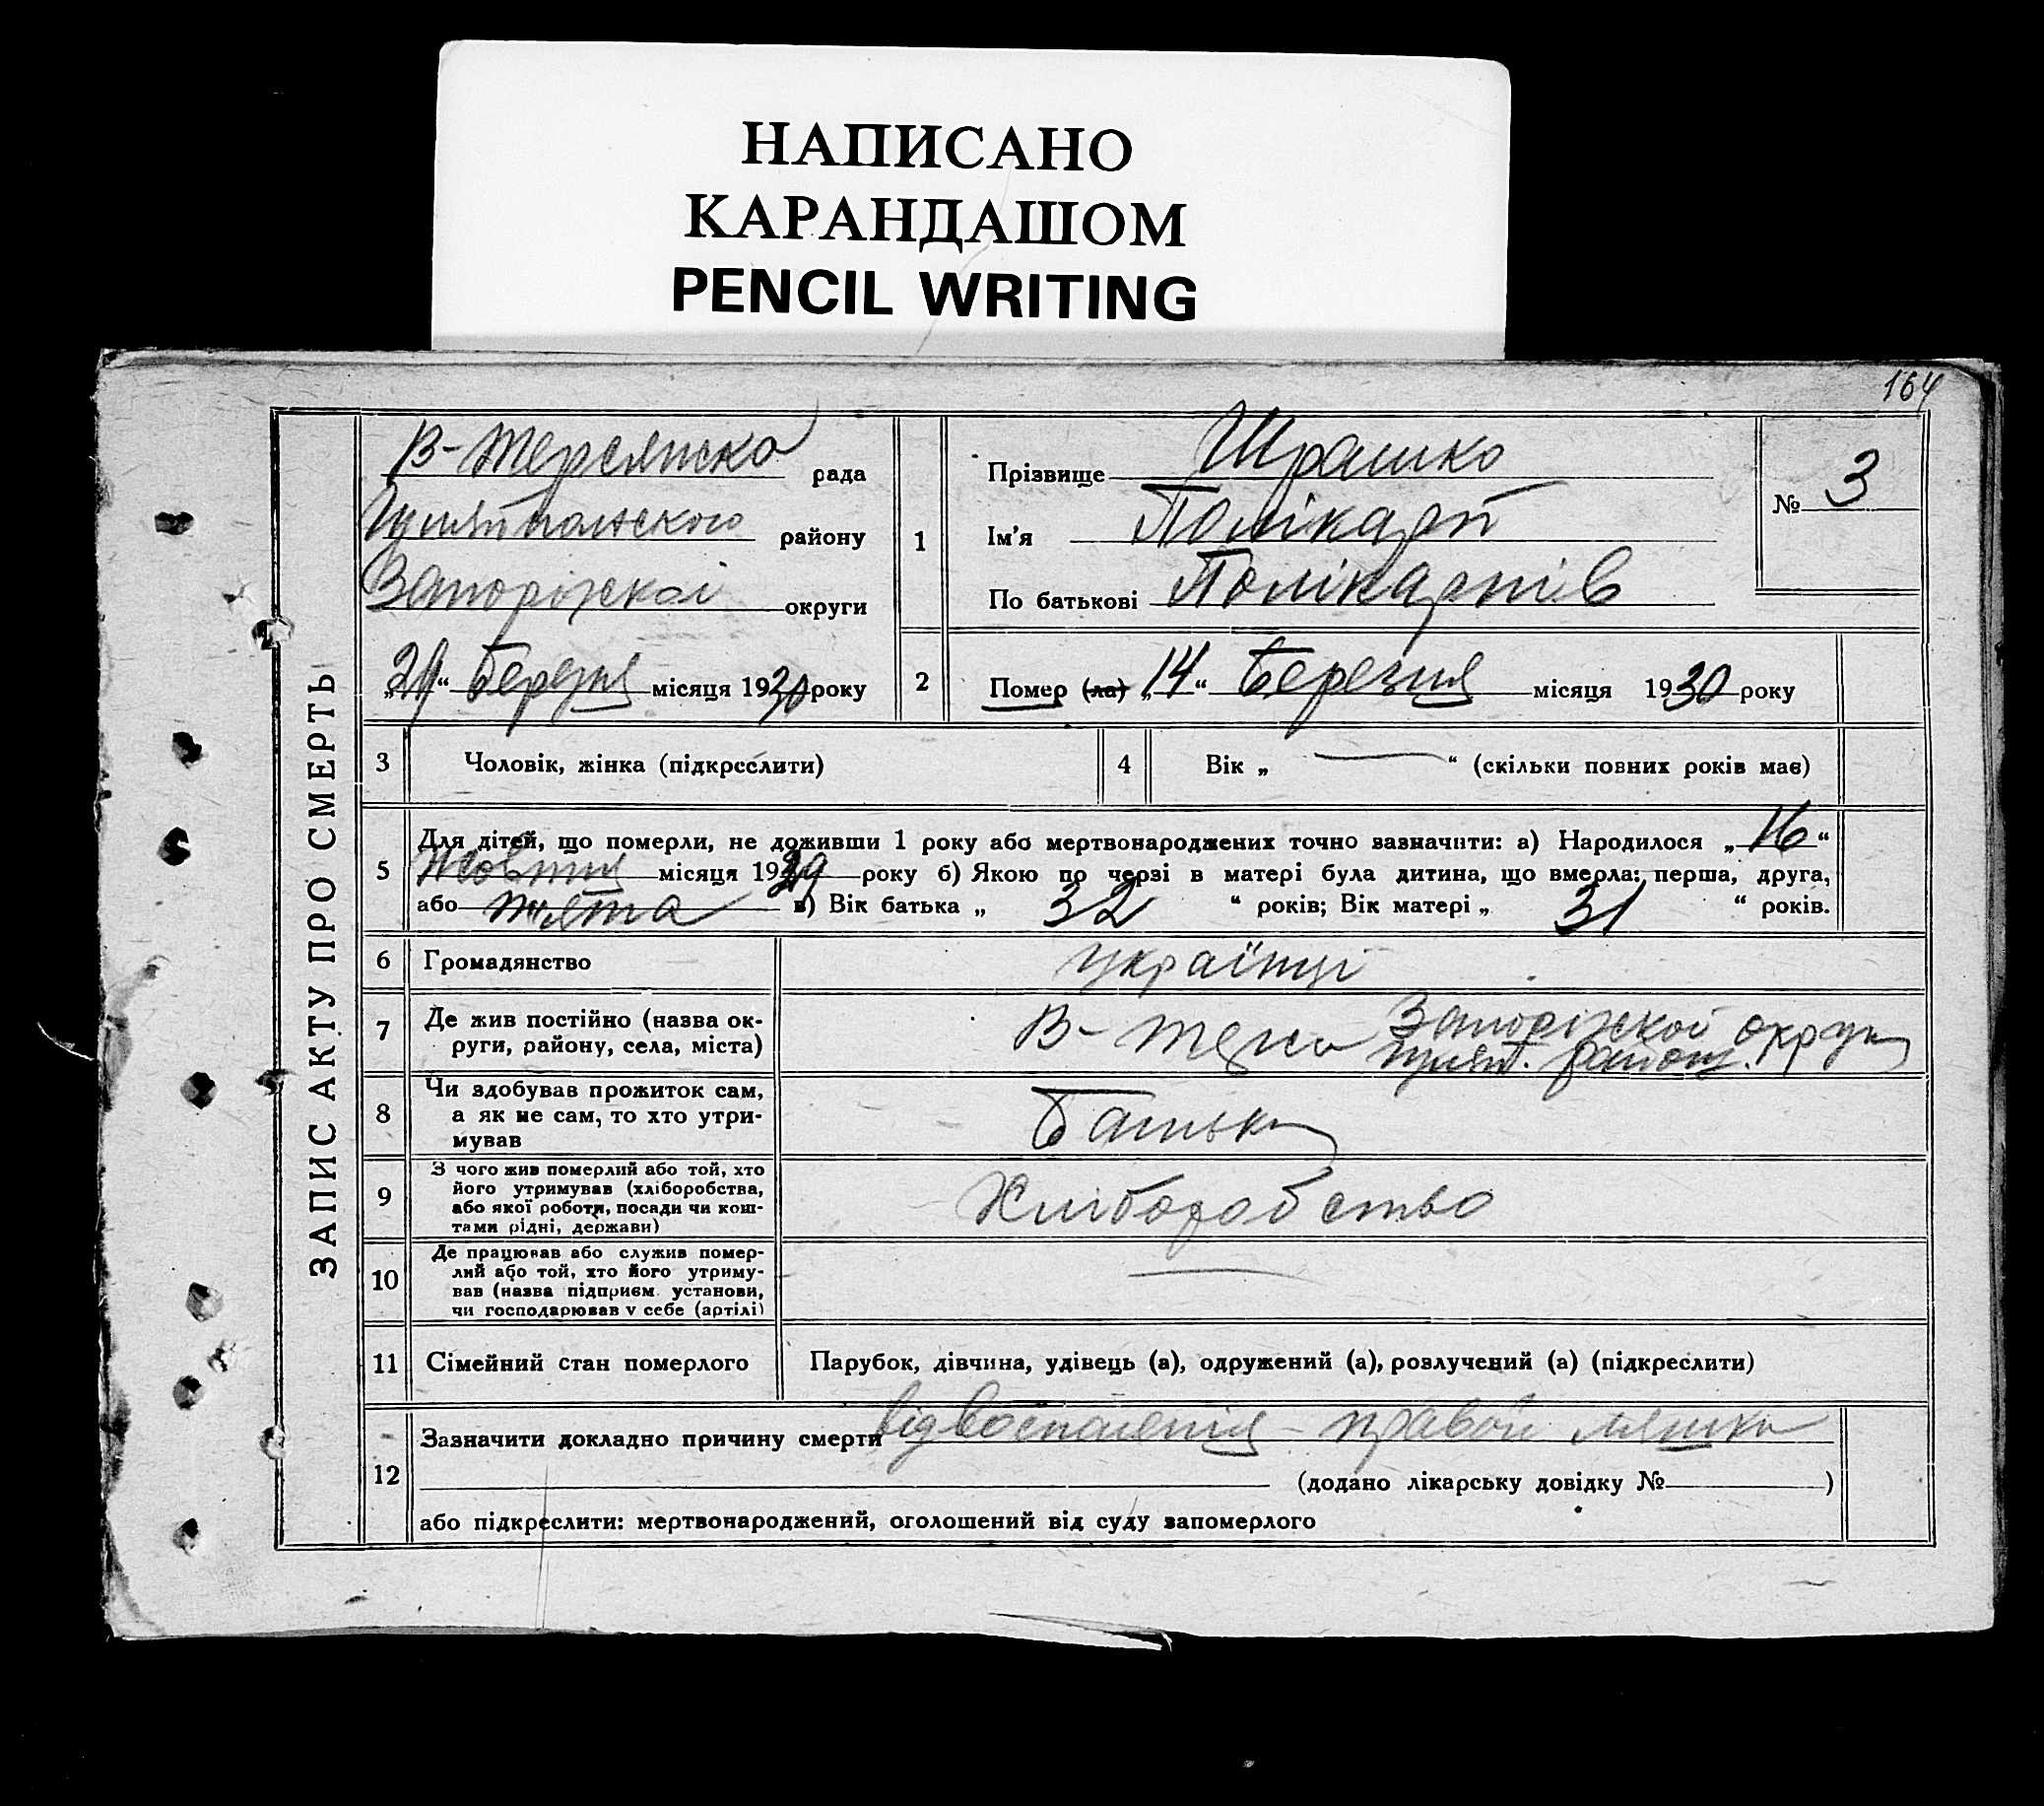 НАПИСАНО
КАРАНДАШОМ
PENCIL WRITING
164
ЗАПИС АКТУ ПРО СМЕРТЬ
В-Терсянска рада
району
Запоріжскої округи
„29“ Березня місяця 1930 року
1
Прізвище Шрашко
Ім'я Полікарп
По батькові Полікарпів
№ 3
2
Помер (ла) „14“ Березня місяця 1930 року
3 Чоловік, жінка (підкреслити)
4 Вік „ — “ (скільки повних років має)
5 Для дітей, що померли, не доживши 1 року або мертвонароджених точно зазначити: а) Народилося „16“
Жовтня місяця 1929 року б) Якою по черзі в матері була дитина, що вмерла: перша, друга,
або пята в) Вік батька „ 32 “ років; Вік матері „ 31 “ років.
6 Громадянство українці
7 Де жив постійно (назва ок-
руги, району, села, міста)
В- Запоріжской округи
Гуляй. району.
8 Чи здобував прожиток сам,
а як не сам, то хто утри-
мував
Батьки
9 З чого жив померлий або той, хто
його утримував (хліборобства,
або якої роботи, посади чи кош-
тами рідні, держави)
Хліборобство
10 Де працював або служив помер-
лий або той, хто його утриму-
вав (назва підприєм. установи,
чи господарював у себе (артілі)
—
11 Сімейний стан померлого Парубок, дівчина, удівець (а), одружений (а), розлучений (а) (підкреслити)
12 Зазначити докладно причину смерти від воспаления правой
(додано лікарську довідку № )
або підкреслити: мертвонароджений, оголошений від суду запомерлого